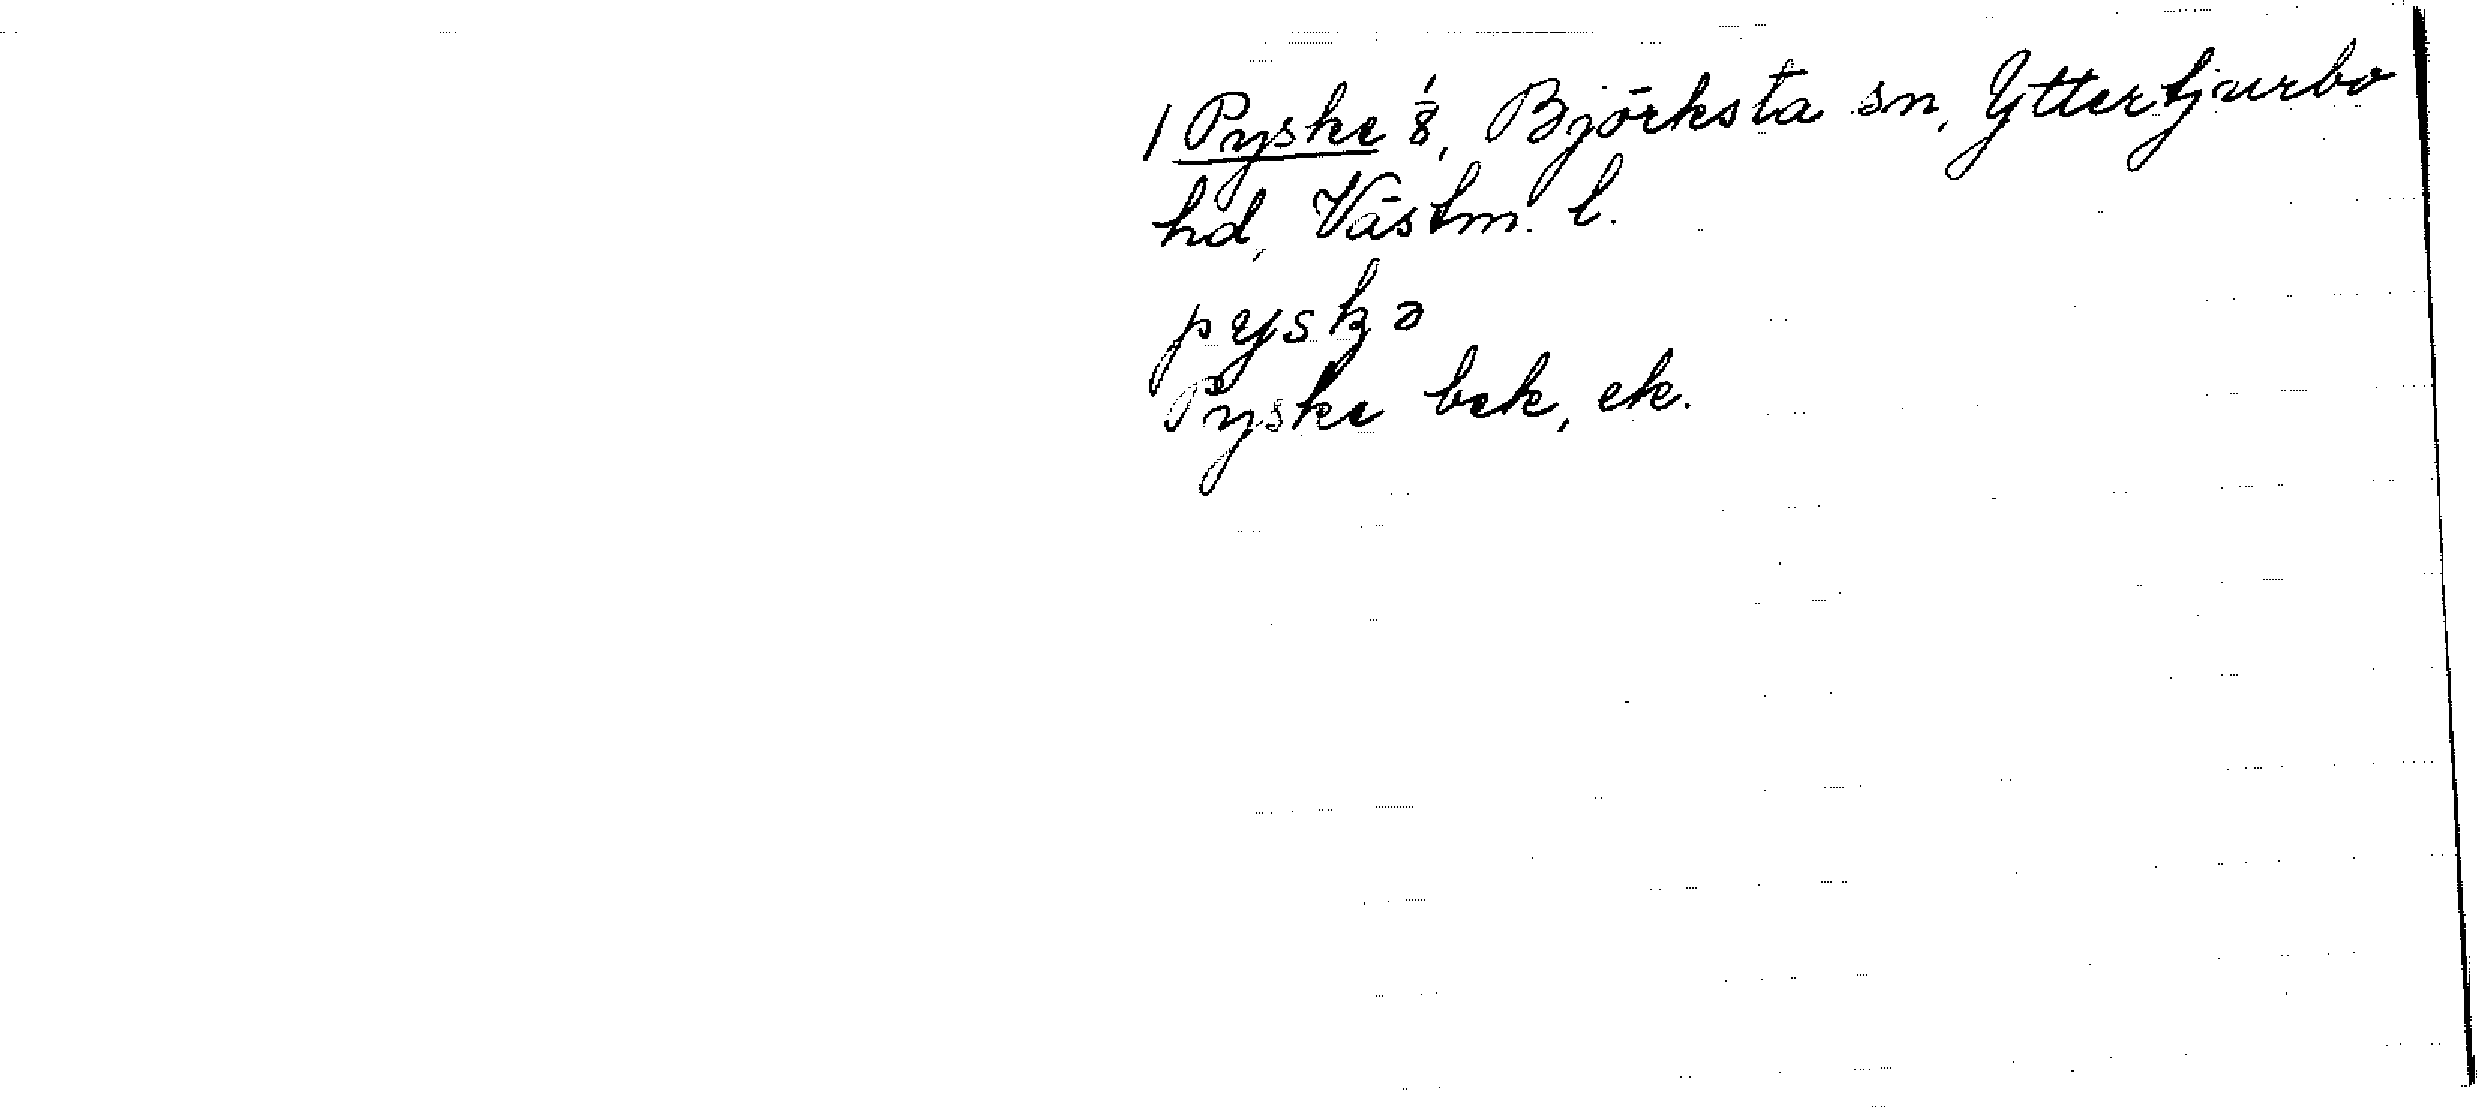 1 Pyske 1/8, Björksta sn, Yttertjurbo
hd, Västm. l.
pyskə
Pyske bek, ek.